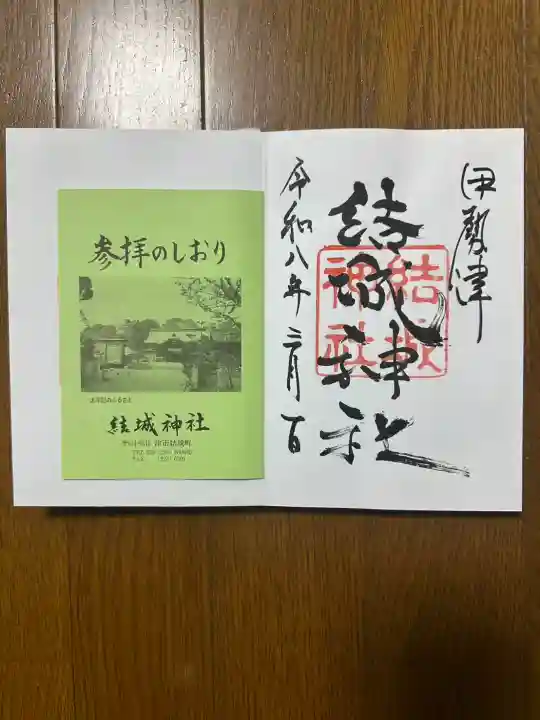 伊勢津
結城神社
結城
神社
令和八年二月一日
参拝のしおり
結城神社
津市結城町